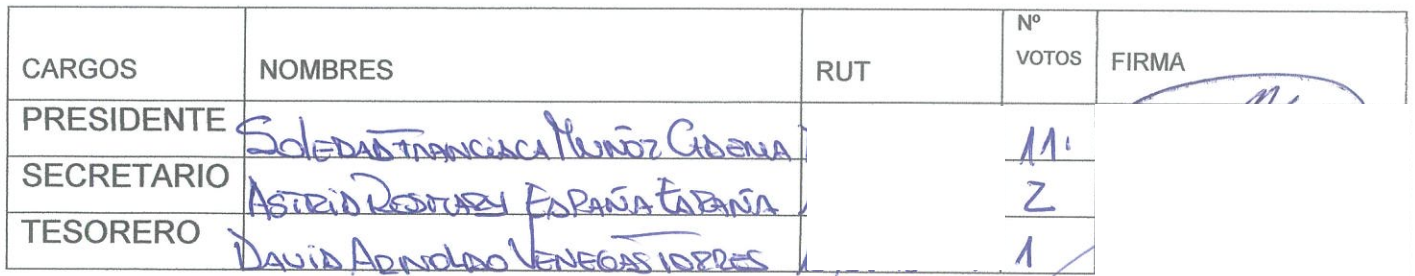 CARGOS NOMBRES RUT Nº VOTOS FIRMA
PRESIDENTE SOLEDAD FRANCISCA MUÑOZ 11
SECRETARIO ASTRID ROSMARY ESPAÑA ESPAÑA 2
TESORERO DAVID ARNOLDO VENEGAS TORRES 1